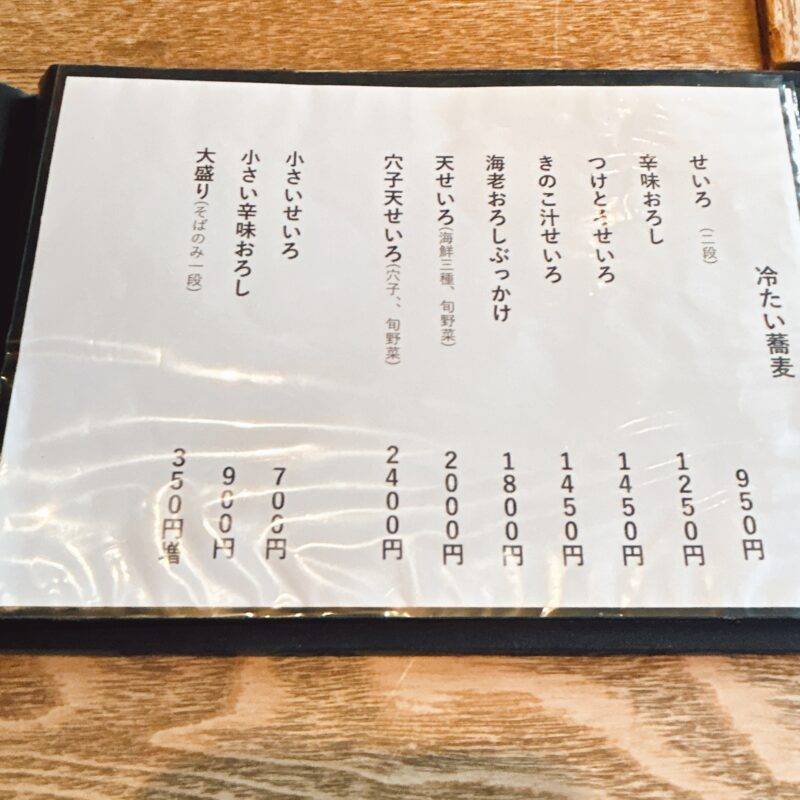 冷たい蕎麦
せいろ（二段） 950円
辛味おろし 1250円
つけとろせいろ 1450円
きのこ汁せいろ 1450円
海老おろしぶっかけ 1800円
天せいろ（海鮮三種、旬野菜） 2000円
穴子天せいろ（穴子、、旬野菜） 2400円
小さいせいろ 700円
小さい辛味おろし 900円
大盛り（そばのみ一段） 350円増